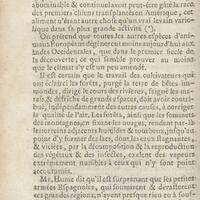 abominable & continuel avoit peut-être gâté la race
des premiers chiens transplantés en Amérique, cet
aliment n'étant autre chose qu'un vrai levain vario-
lique dans sa plus grande activité (*).
On prétend que toutes les autres espèces d'ani-
maux Européans dégénèrent moins aujourd'hui aux
Indes Occidentales, que dans le premier siecle de
la découverte; ce qui semble prouver au moins
que le climat s'y est un peu amendé.
Il est certain que le travail des cultivateurs qui
ont éclairci les forêts, purgé la terre de bêtes im-
mondes, dirigé le cours des rivières, saigné les ma-
rais & défriché de grands espaces, doit avoir contri-
bué, indépendamment des autres causes, à corriger
la qualité de l'air. Les forêts, ainsi que les sommets
des montagnes, en fixant les nuages, rendent par-là
l'horison couvert, ténébreux, & toutefois, lorsqu'un
point d'y former des lacs, dont les eaux stagnantes,
& viciées, par la décomposition & la reproduction
des végétaux & des insectes, exalent des vapeurs
extrêmement nuisibles à ceux qui n'y sont point
accoutumés.
Mr. Hume dit qu'il est surprenant que les petites
armées Espagnoles, qui soumirent & dévasterent
ces grandes régions, n'ayent presque rien eu à souf-